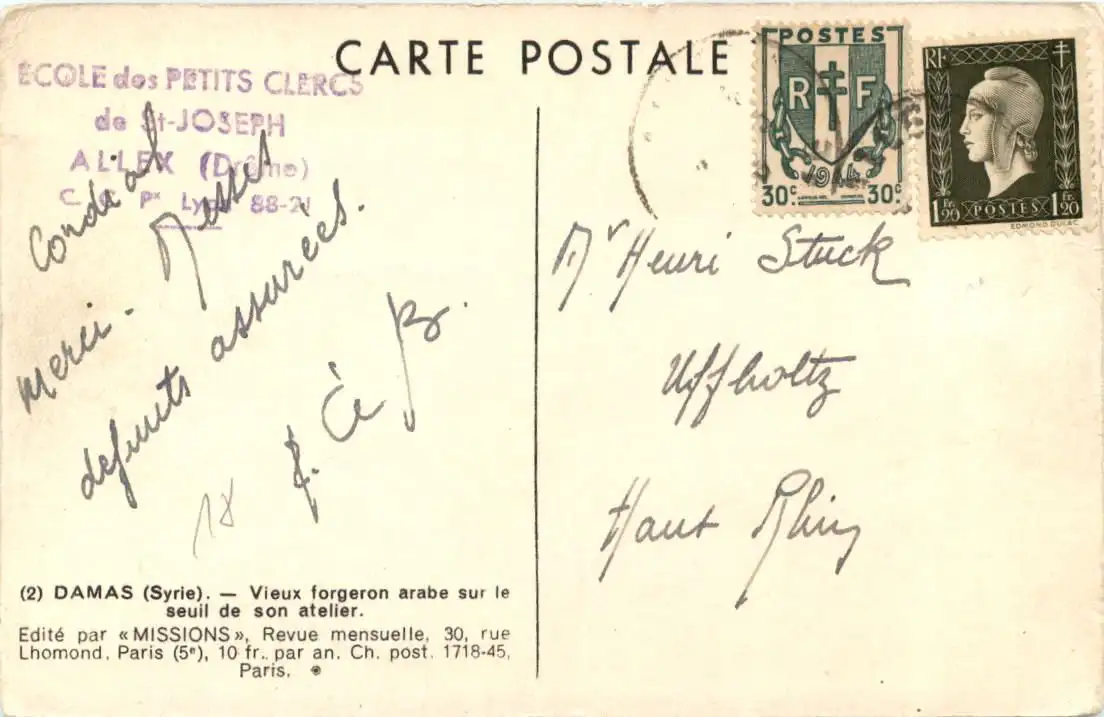 CARTE POSTALE
ECOLE des PETITS CLERCS
de St-JOSEPH
ALLEX (Drôme)
C. C. Px Lyon 88-21
Cordial
merci. Messes
defunts assurées.
f. B.
18
(2) DAMAS (Syrie). — Vieux forgeron arabe sur le
seuil de son atelier.
Edité par «MISSIONS», Revue mensuelle, 30, rue
Lhomond, Paris (5e), 10 fr. par an. Ch. post. 1718-45,
Paris.
POSTES
R F
1944
30c 30c
RF
1Fr.20 POSTES 1Fr.20
EDMOND DULAC
Mr Henri Stuck
Uffholtz
Haut Rhin